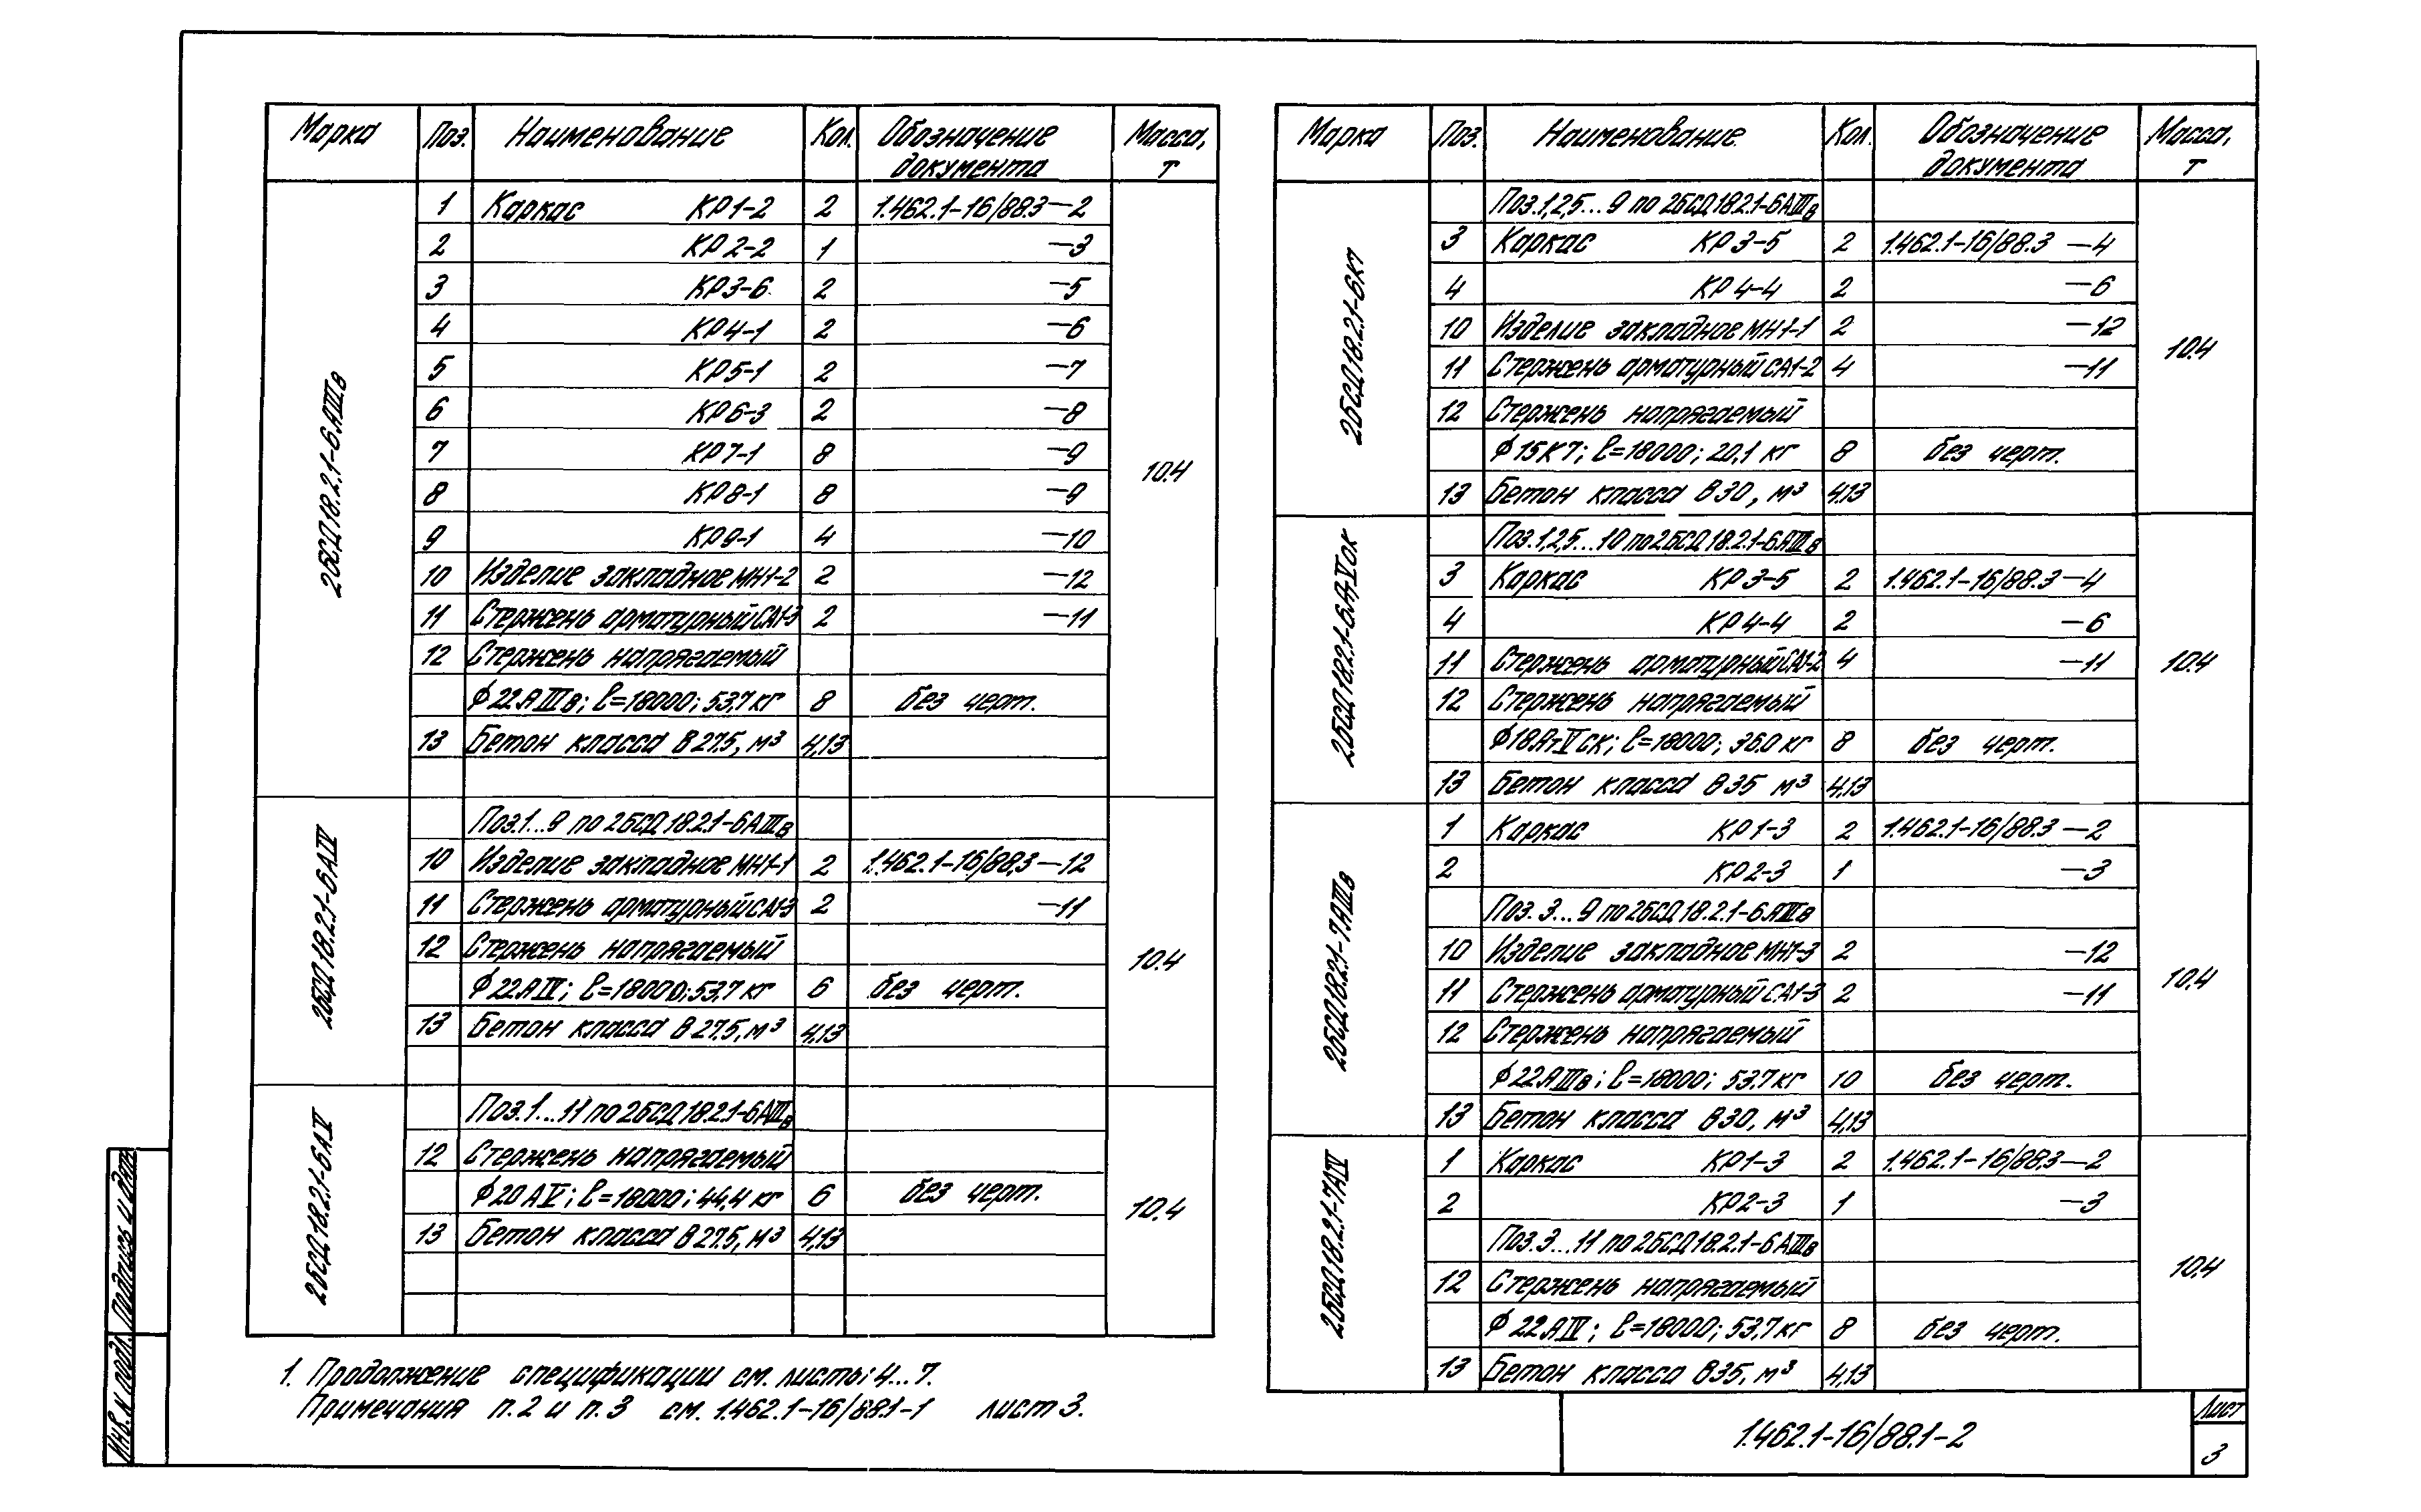 Марка Поз. Наименование Кол. Обозначение документа Масса, т
2БСД18.2.1-6АIIIв 10.4
1 Каркас КР1-2 2 1.462.1-16/88.3-2
2 КР2-2 1 -3
3 КР3-6 2 -5
4 КР4-1 2 -6
5 КР5-1 2 -7
6 КР6-3 2 -8
7 КР7-1 8 -9
8 КР8-1 8 -9
9 КР9-1 4 -10
10 Изделие закладное МН1-2 2 -12
11 Стержень арматурный СА1-3 2 -11
12 Стержень напрягаемый
ϕ22АIIIв; ℓ=18000; 53,7 кг 8 без черт.
13 Бетон класса В27.5, м³ 4,13
2БСД18.2.1-6АIV 10.4
Поз.1...9 по 2БСД18.2.1-6АIIIв
10 Изделие закладное МН1-1 2 1.462.1-16/88.3-12
11 Стержень арматурный СА1-3 2 -11
12 Стержень напрягаемый
ϕ22АIV; ℓ=18000; 53,7 кг 6 без черт.
13 Бетон класса В27.5, м³ 4,13
2БСД18.2.1-6АV 10.4
Поз.1...11 по 2БСД18.2.1-6АIIIв
12 Стержень напрягаемый
ϕ20АV; ℓ=18000; 44,4 кг 6 без черт.
13 Бетон класса В27.5, м³ 4,13
1. Продолжение спецификации см. листы 4...7.
Примечания п.2 и п.3 см. 1.462.1-16/88.1-1 лист 3.
Марка Поз. Наименование Кол. Обозначение документа Масса, т
2БСД18.2.1-6К7 10.4
Поз.1,2,5...9 по 2БСД18.2.1-6АIIIв
3 Каркас КР3-5 2 1.462.1-16/88.3 -4
4 КР4-4 2 -6
10 Изделие закладное МН1-1 2 -12
11 Стержень арматурный СА1-2 4 -11
12 Стержень напрягаемый
ϕ15К7; ℓ=18000; 20,1 кг 8 без черт.
13 Бетон класса В30, м³ 4,13
10.4
Поз.1,2,5...10 по 2БСД18.2.1-6АIIIв
3 Каркас КР3-5 2 1.462.1-16/88.3-4
4 КР4-4 2 -6
11 Стержень арматурный СА1-2 4 -11
12 Стержень напрягаемый
ϕ18АтVСК; ℓ=18000; 36.0 кг 8 без черт.
13 Бетон класса В35 м³ 4,13
2БСД18.2.1-7АIIIв 10.4
1 Каркас КР1-3 2 1.462.1-16/88.3-2
2 КР2-3 1 -3
Поз. 3...9 по 2БСД18.2.1-6АIIIв
10 Изделие закладное МН1-3 2 -12
11 Стержень арматурный СА1-3 2 -11
12 Стержень напрягаемый
ϕ22АIIIв; ℓ=18000; 53.7 кг 10 без черт.
13 Бетон класса В30, м³ 4,13
2БСД18.2.1-7АIV 10.4
1 Каркас КР1-3 2 1.462.1-16/88.3-2
2 КР2-3 1 -3
Поз.3...11 по 2БСД18.2.1-6АIIIв
12 Стержень напрягаемый
ϕ22АIV; ℓ=18000; 53,7 кг 8 без черт.
13 Бетон класса В35, м³ 4,13
Инв.N подл. Подпись и дата
1.462.1-16/88.1-2
Лист
3